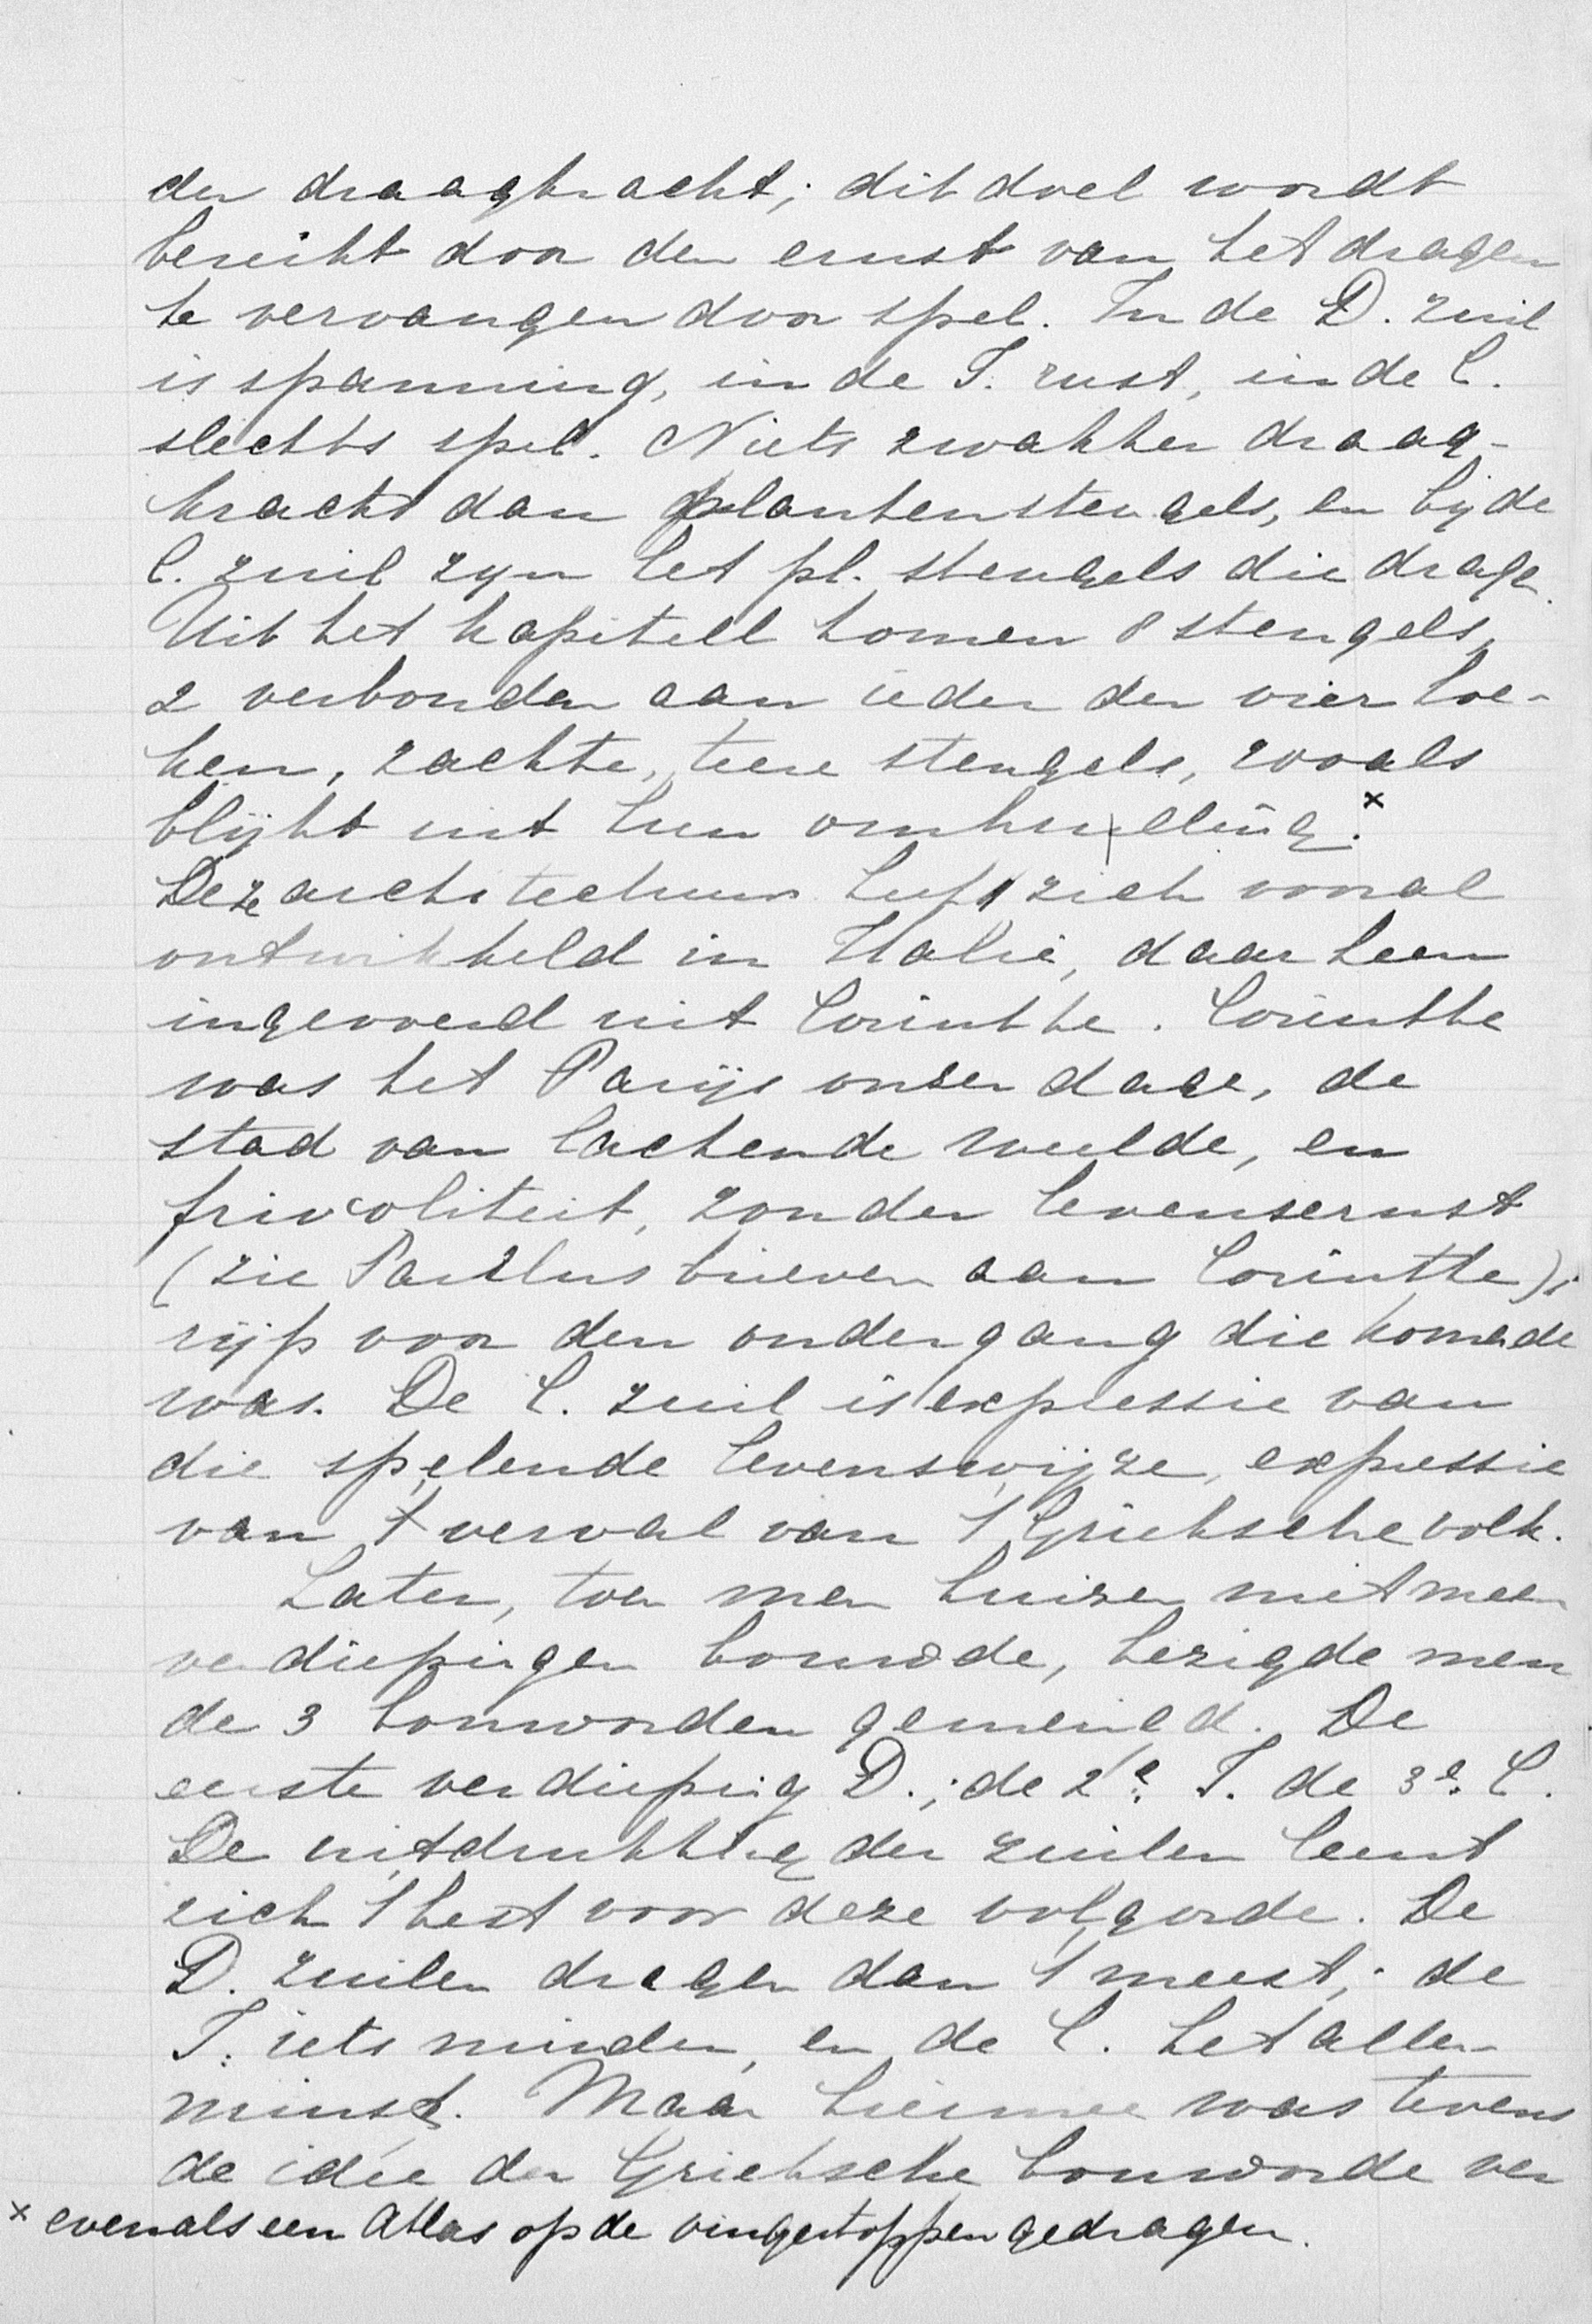 der draagkracht; dit doel wordt
bereikt door den ernst van het dragen
te vervangen door spel. In de D. zuil
is spanning, in de I. rust, in de C.
slechts spel. Niets zwakker draag-
kracht dan plantenstengels, en bij de
C. zuil zijn het pl. stengels die dragen.
Uit het kapiteel komen 8 stengels,
2 verbonden aan ieder der vier hoe-
ken, zachte, teere stengels, zooals
blijkt uit hun omkrulling.ˣ
Deze architectuur heeft zich vooral
ontwikkeld in Italië, daarheen
ingevoerd uit Corinthe. Corinthe
was het Parijs onzer dage, de
stad van lachende weelde, en
frivoliteit, zonder levensernst
(zie Paulus brieven aan Corinthe);
rijp voor den ondergang die komende
was. De C. zuil is expressie van
die spelende levenswijze, expressie
van 't verval van 't Grieksche volk.
Later, toen men huizen met meer
verdiepingen bouwde, bezigde men
de 3 bouworden gemengd. De
eerste verdieping D.; de 2e. I. de 3e. C.
De uitdrukking der zuilen leent
zich 't best voor deze volgorde. De
D. zuilen dragen dan 't meest; de
I. iets minder, en de C. het aller-
minst. Maar hiermee was tevens
de idée der Grieksche bouworde ver
x evenals een Atlas op de vingertoppen gedragen.